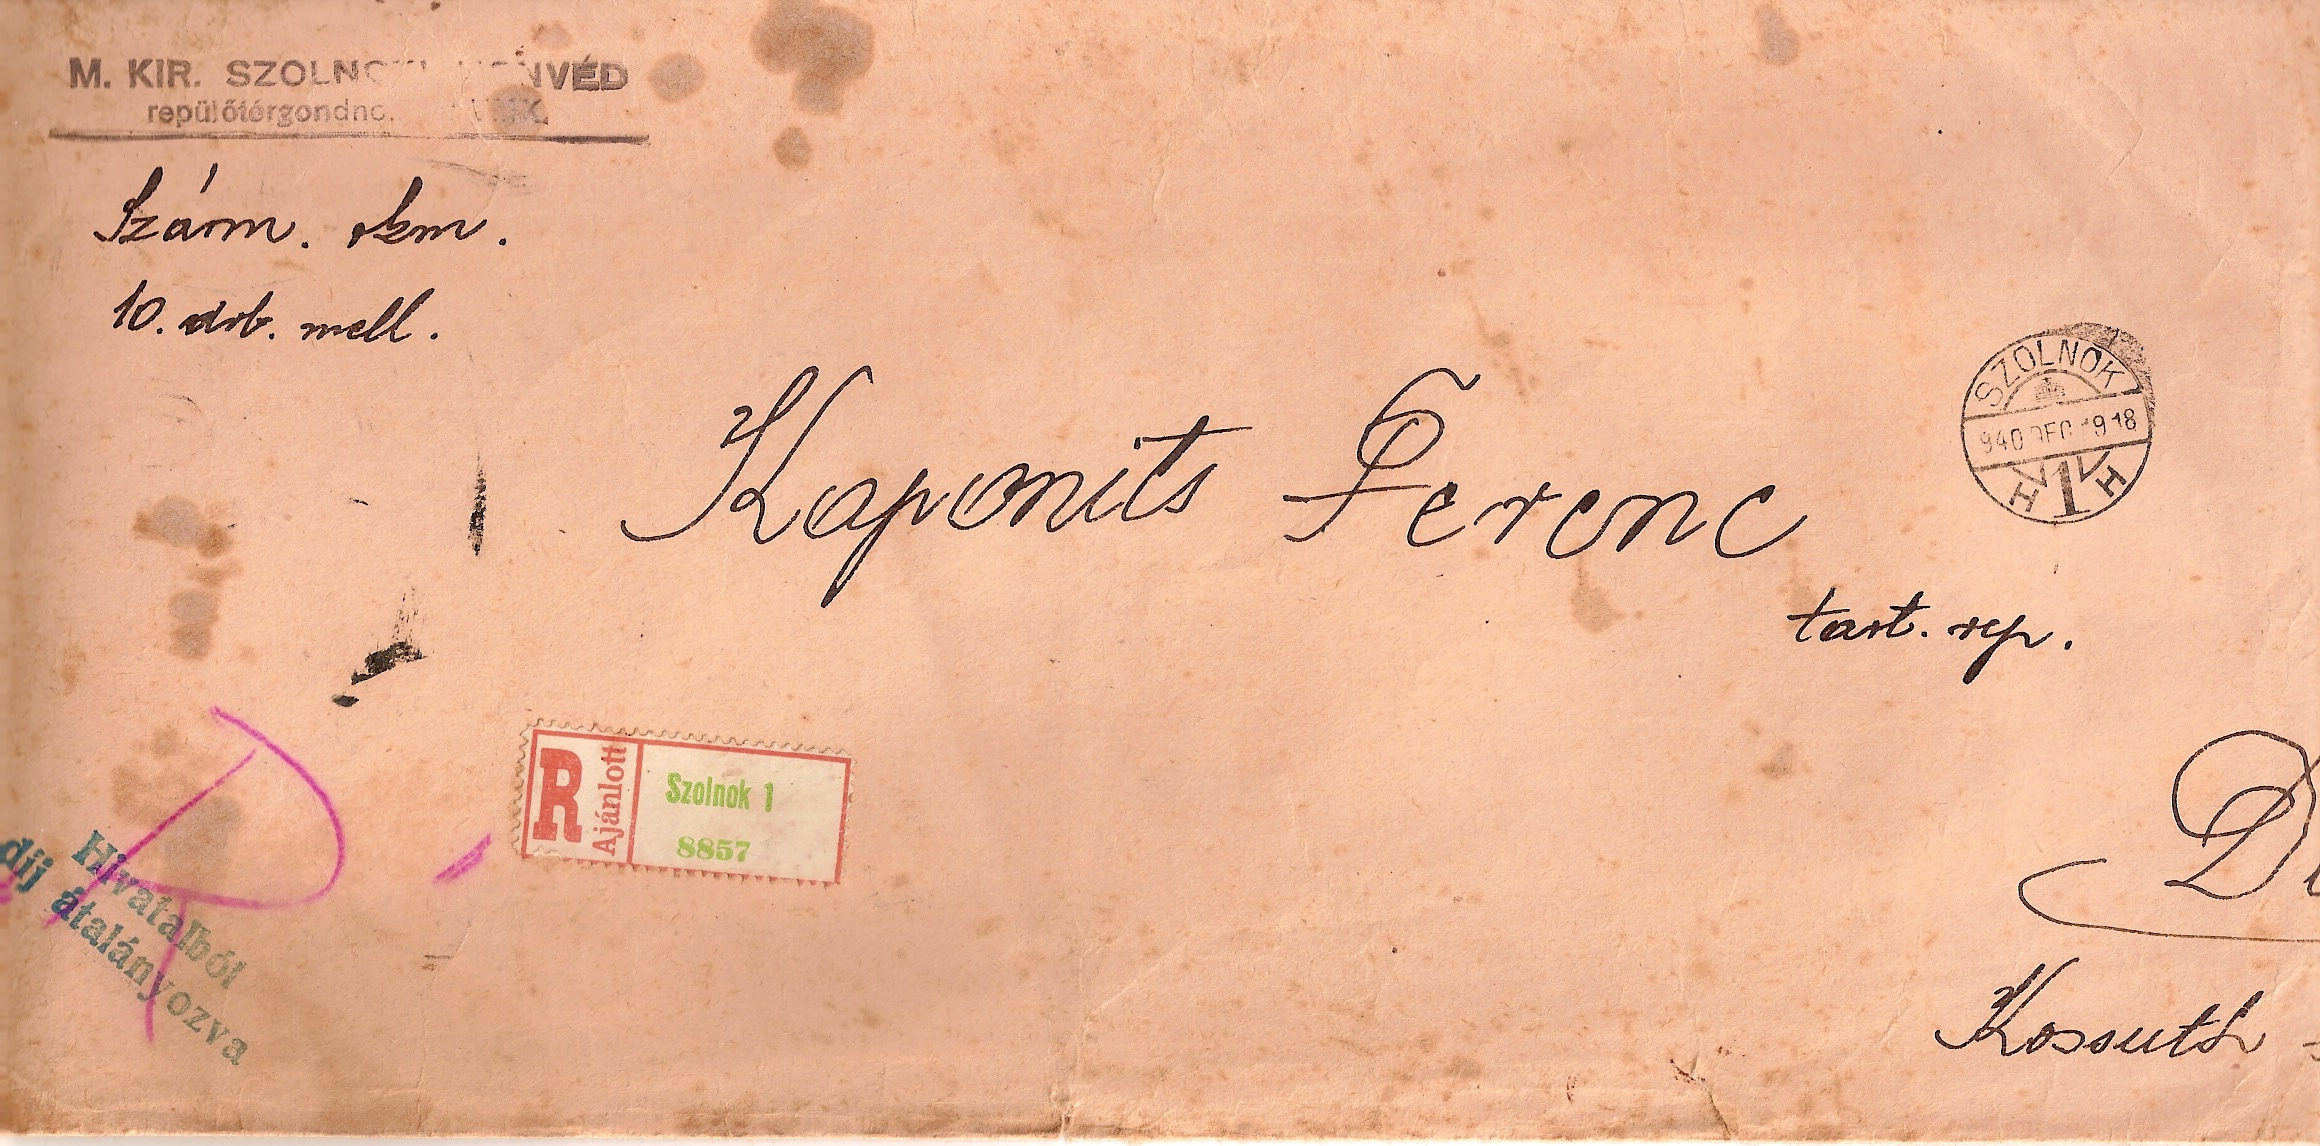 M. KIR. SZOLNOKI HONVÉD
repülőtérgondno.
Szárm. okm.
10. drb. mell.
Kaponits Ferenc
SZOLNOK
940 DEC 19 18
H 1 H
tart. rep.
R Ajánlott
Szolnok 1
8857
Hivatalból
díj átalányozva
Kossuth